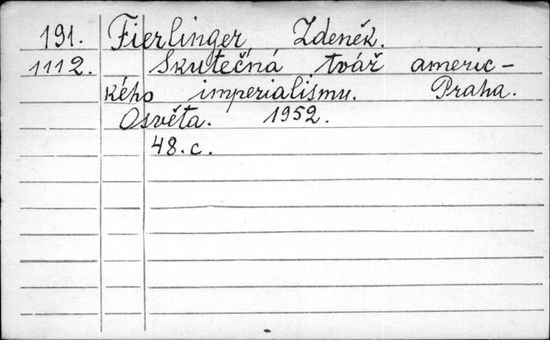 191. Fierlinger Zdeněk.
1112. Skutečná tvář americ-
kého imperialismu. Praha.
Osvěta. 1952.
48.c.